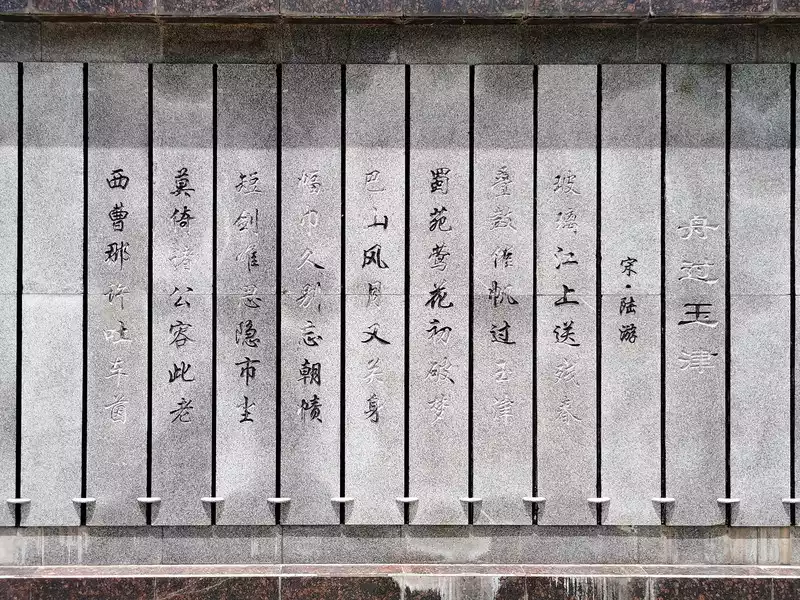 舟过玉津
宋·陆游
玻璃江上送残春
叠鼓催帆过玉津
蜀苑莺花初破梦
巴山风月又关身
幅巾久别忘朝帻
短剑惟思隐市尘
莫倚诸公容此老
西曹那许吐车茵